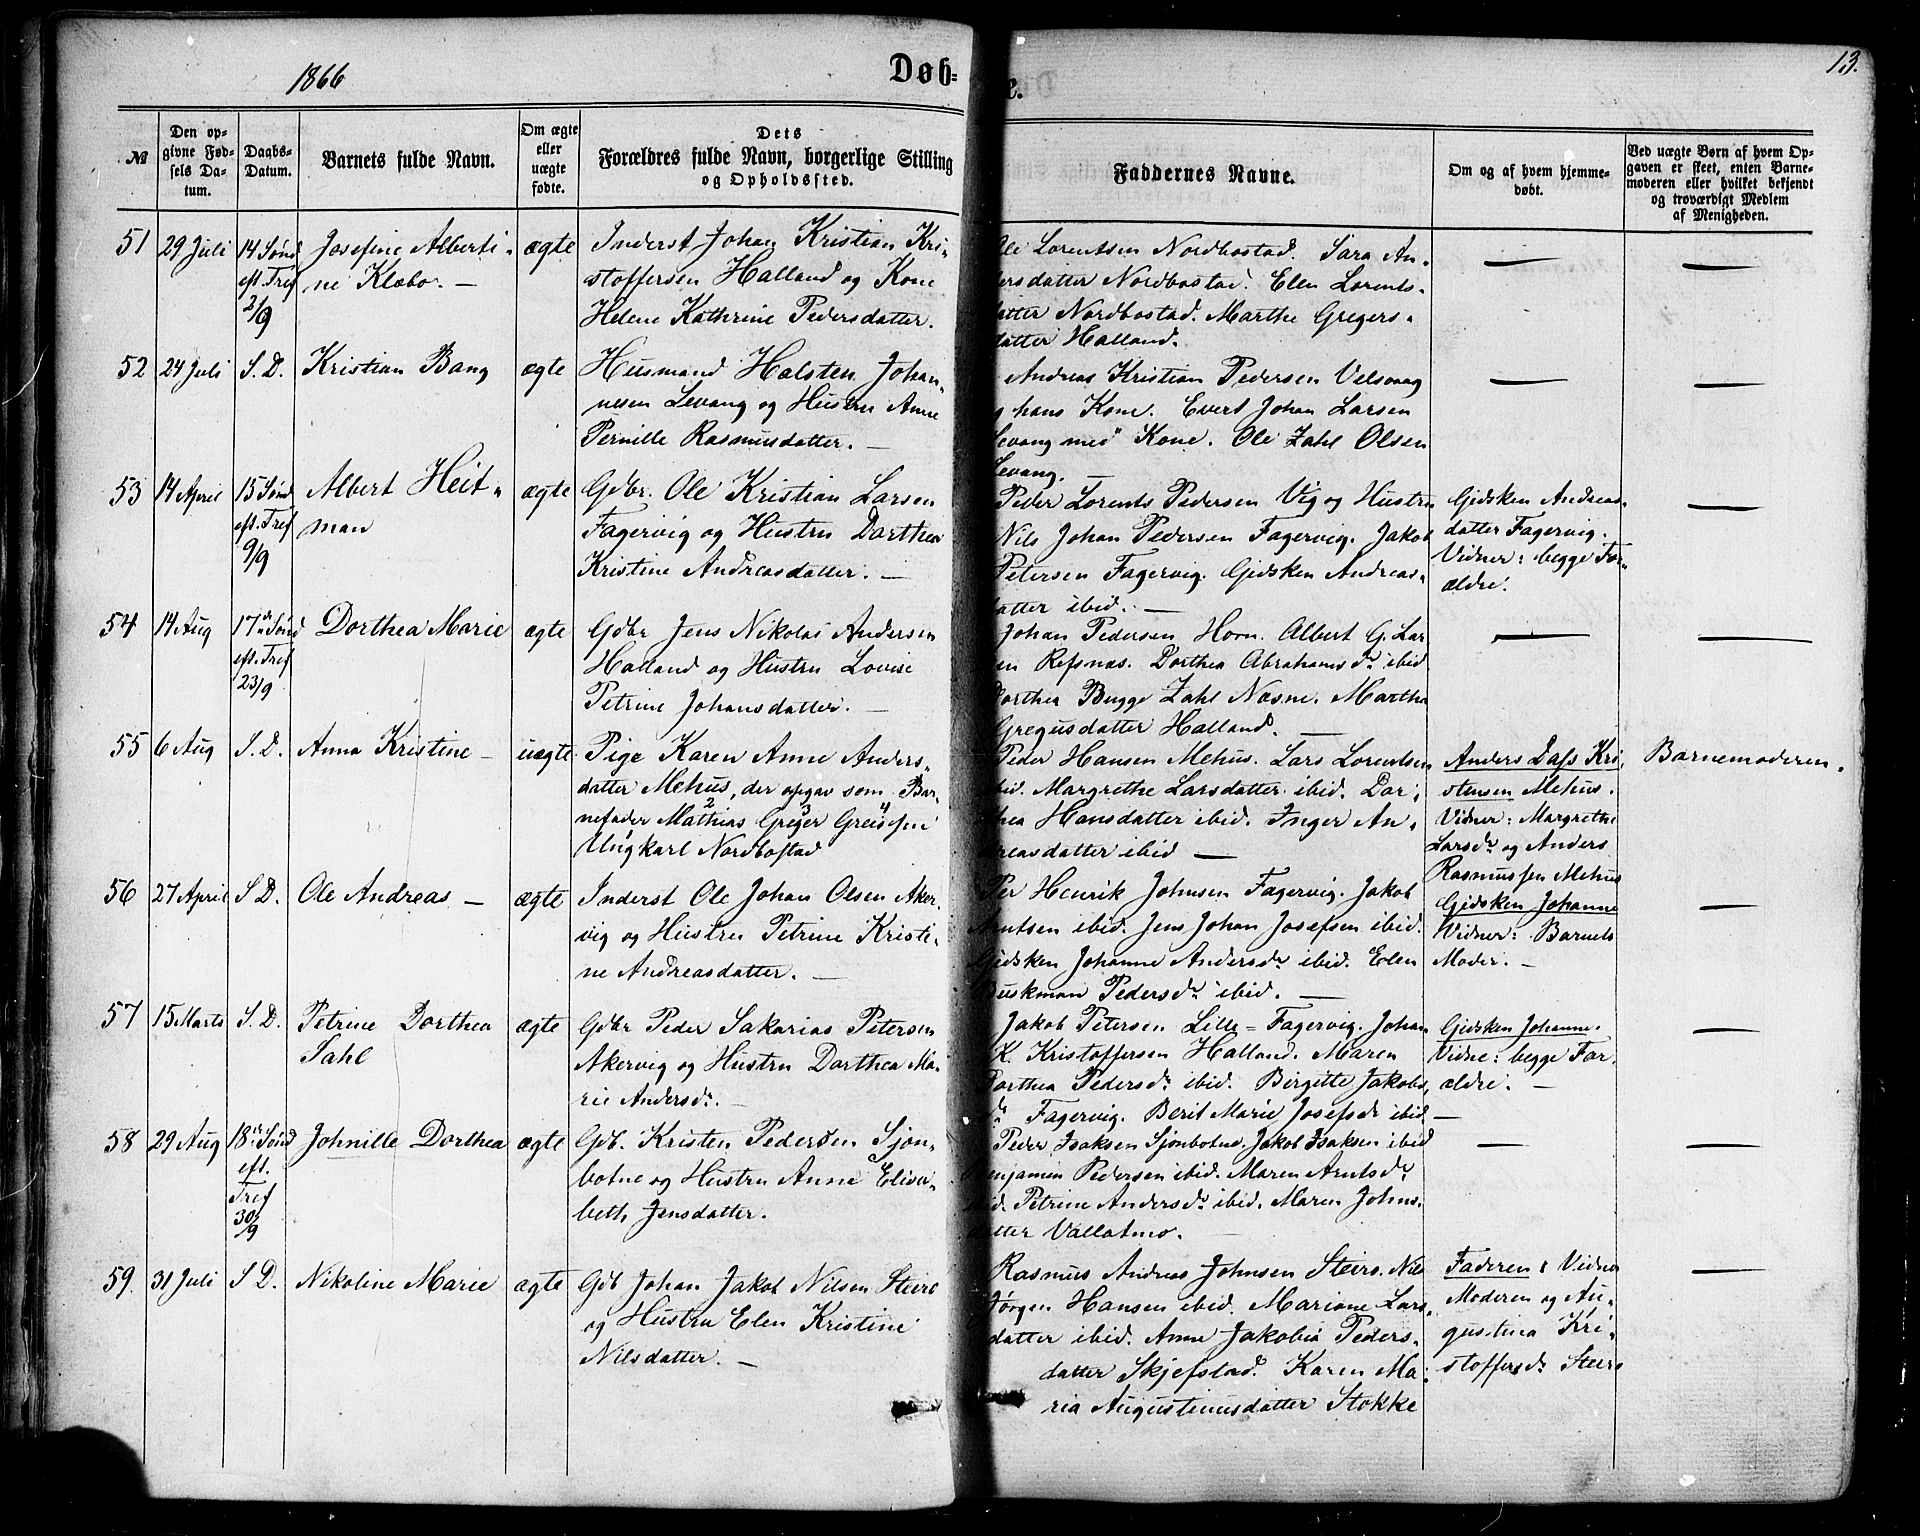 1866
Døb-
e.
13.
№
Den op-
givne Fød-
sels Da-
tum.
Daabs-
Datum.
Barnets fulde Navn.
Om ægte
eller
uægte
fødte.
Dets
Forældres fulde Navn, borgerlige Stilling
og Opholdssted.
Faddernes Navne.
Om og af hvem hjemme-
døbt.
Ved uægte Børn af hvem Op-
gaven er skeet, enten Barne-
moderen eller hvilket bekjendt
og troværdigt Medlem
af Menigheden.
51
29 Juli
14 Sønd
eft. Tref
2/9
Josefine Alberti-
ne Klæbo. -
ægte
Inderst Johan Kristian Kri-
stoffersen Halland og Kone
Helene Kathrine Pedersdatter.
Ole Lorentsen Nordbostad. Sara An-
dersdatter Nordbostad. Elen Lorents-
datter Nordbostad. Marthe Gregers-
datter Halland.
—
—
52
24 Juli
S. D.
Kristian Bang
ægte
Husmand Halsten Johan-
nesen Levang og Hustru Anne
Pernille Rasmusdatter. —
Andreas Kristian Pedersen Velsvaag
og hans Kone. Evert Johan Larsen
Levang med Kone. Ole Zahl Olsen
Levang. —
—
—
53
14 April
15 Sønd
eft. Tref
9/9
Albert Heit-
man
ægte
Gdbr. Ole Kristian Larsen
Fagervig og Hustru Dorthea
Kristine Andreasdatter. —
Peder Lorents Pedersen Vig og Hustru
Nils Johan Pedersen Fagervig. Jakob
Petersen Fagervig. Gidsken Andreas-
datter ibid. —
Gidsken Andreas-
datter Fagervig.
Vidner: begge For-
ældre.
—
54
14 Aug
17de Sønd
eft. Tref
23/9
Dorthea Marie
ægte
Gdbr Jens Nikolai Andersen
Halland og Hustru Lovise
Petrine Johansdatter. —
Johan Pedersen Horn. Albert G. Lar-
sen Refsnæs. Dorthea Abrahamsdr ibid
Dorthea Bugge Zahl Næsne. Martha
Gregusdatter Halland. —
—
—
55
6 Aug
S. D.
Anna Kristine —
uægte
Pige Karen Anne Anders-
datter Mehus, der opgav som Bar-
nefader Mathias 2 Greger 3 Greisen 4
Ungkarl Nordbostad
Peder Hansen Mehus. Lars Lorentsen
ibid. Margrethe Larsdatter ibid. Dor-
thea Hansdatter ibid. Inger An-
dreasdatter ibid —
Anders Dass Kri-
stensen Mehus.
Vidner: Margrethe
Larsdr og Anders
Rasmussen Mehus
Barnemoderen.
56
27 April
S. D.
Ole Andreas —
ægte
Inderst Ole Johan Olsen Aker-
vig og Hustru Petrine Kristi-
ne Andreasdatter. —
Per Henrik Johnsen Fagervig. Jakob
Arntsen ibid. Jens Johan Josefsen ibid.
Gidsken Johanne Andersdr ibid. Elen
Buskman Pedersdr ibid. —
Gidsken Johanne
Vidner: Barnets
Moder. —
—
57
15 Marts
S. D.
Petrine Dorthea
Sahl
ægte
Gdbr Peder Sakarias Petersen
Akervig og Hustru Dorthea Ma-
rie Andersdr. —
Jakob Petersen Lille-Fagervig. Johan
K. Kristoffersen Halland. Maren
Dorthea Pedersdr ibid. Birgitte Jakobs-
dr Fagervig. Berit Marie Josefsdr ibid —
Gidsken Johanne.
Vidne: begge For-
ældre. —
—
58
29 Aug
18de Sønd
eft.
Tref
30/9
Johnille Dorthea
ægte
Gdb. Kristen Pedersen Sjøn-
botne og Hustru Anne Elisa-
beth Jensdatter.
Peder Isaksen Sjønbotne. Jakob Isaksen ibid
Benjamin Pedersen ibid. Maren Arntsdr
ibid. Petrine Andersdr ibid. Maren Johns-
datter Vallatmo.
—
—
59.
31 Juli
S D.
Nikoline Marie
ægte
Gdb Johan Jakob Nilsen Steiro
og Hustru Elen Kristine
Nilsdatter. —
Rasmus Andreas Johnsen Steiro. Nils
Jørgen Hansen ibid. Mariane Lars-
datter ibid. Anne Jakobia Peders-
datter Skjefstad. Karen Ma-
ria Augustinusdatter Stokke
Faderen: Vidner
Moderen og Au-
gustina Kri-
stoffersdr Steiro
—